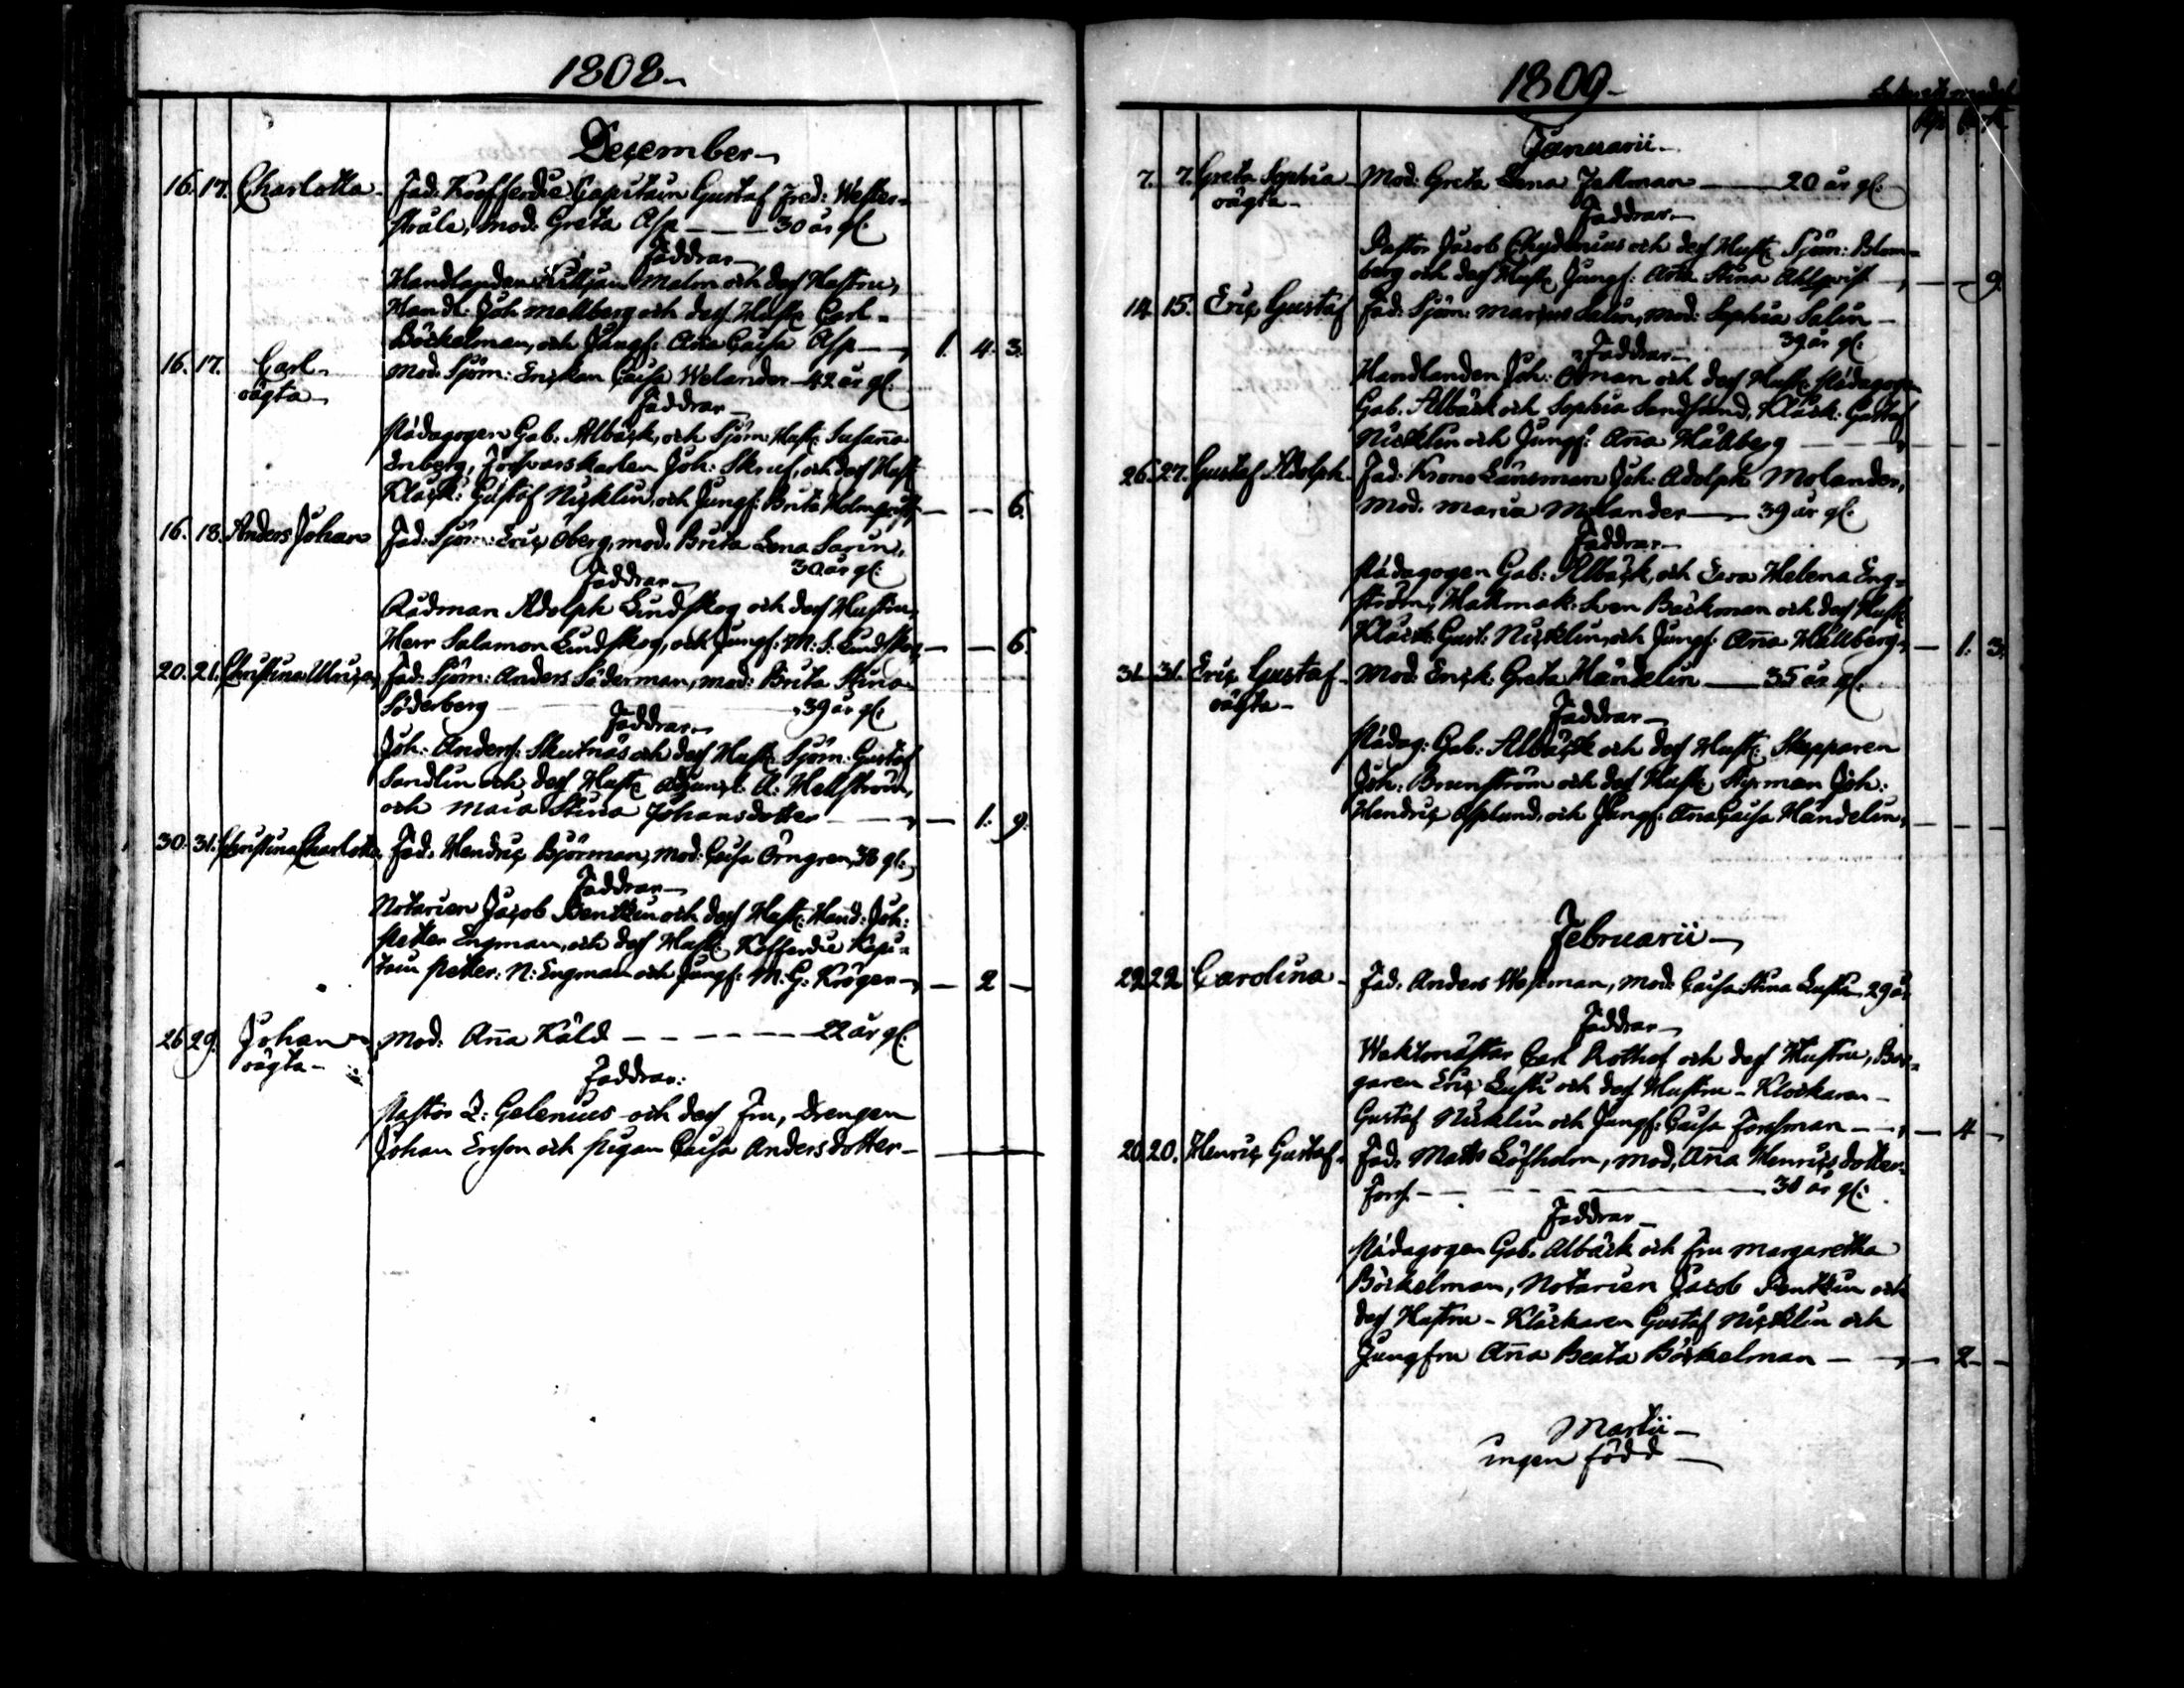 1808
December
16. 17. Charlotta Fad. Koofferdie Capitain Gustaf Fred: Wester-
stråle, mod. Greta Asp 30 år gl:
Faddrar
Handlanden Malm och dess Hustru,
Handl: Joh Mallberg och dess Hustr. Carl
Böckelman, och Jungf: Aña Caisa Asp 1. 4. 3.
16. 17. Carl Mod. Sjöm: Enckan Caisa Welander 42 år gl.
oägta Faddrar
Pädagogen Gab: Albäck, och Sjöm: Hustr. Susaña
Enberg, Försvarskarlen Joh: Skruf, och dess Hustr
Klock: Gustaf Nicklin, och Jungf: Brita Holmqvist 6.
16. 18. Anders Johan Fad: Sjöm: Eric Öberg, mod. Brita Lena Sarin,
Faddrar 30 år gl:
Rådman Adolph Lindskog och dess Hustru,
Herr Salamon Lindskog, och Jungf: M: S: Lindskog 6.
20. 21. Christina Ulrica Fad: Sjöm: Anders Söderman, mod: Brita Stina
Söderberg 39 år gl:
Faddrar
Joh: Anders: Skutnäs och dess Hustr. Sjöm: Gustaf
Sandlin och dess Hustr. A: Hellström,
och Maia Stina Johansdotter 1. 9.
30. 31. Christina Charlotta Fad. Hendric Björman, mod: Caisa Örngren, 38 gl:
Faddrar
Notarien Jacob Bentzin och dess Hustr. Hand: Joh:
Petter Engman, och dess Hustr. Kofferdie Kapi-
tain Petter: N: Engman och Jungf: M: G: Kröger 2
26 29. Johan Mod: Aña Kåld 22 år gl:
oägta Faddrar:
Pastor Z: Gelenius och dess Fru, drengen
Johan Ersson och Pigan Caisa Andersdotter
1809
Januarii
7. 7. Greta Sophia Mod: Greta Lena Fallman 20 år gl:
oägta Faddrar
Pastor Jacob Chydenius och dess Hustr. Sjöm: Blom-
berg och dess Hustr. Jungf: Aña Stina Ahlqvist 9.
14 15. Eric Gustaf Fad: Sjöm: Marcus Salin, mod: Sophia Salin
Faddrar 39 år gl:
Handlanden Joh: Öman och dess Hustr. Pädagogen
Gab. Albäck och Sophia Sandsund, Klock: Gustaf
Nicklin och Jungf: Aña Hällberg
26. 27. Gustaf Adolph Fad. Krono Länsman Joh: Adolph Molander,
Mod. Maria Molander 39 år gl:
Faddrar
Pädagogen Gab: Albäck, och Eva Helena Eng-
ström, Hattmak: Sven Bäckman och dess Hustr.
Klock: Gust: Nicklin, och Jungf: Aña Hällberg 1. 3.
31. 31. Eric Gustaf Mod. Enck. Greta Handelin 35 år gl:
oägta Faddrar
Pädag: Gab: Albäck och dess Hustr. Skepparen
Joh: Brunström och dess Hustr. Styrman Joh:
Hendric Asplund, och Jungf: Aña Caisa Handelin,
Februarii
22 22 Carolina Fad. Anders Westman, mod: Caisa Stina Lustu, 29 år
Faddrar
Waktmästar Carl Rothof och dess Hustru, Bor-
garen Eric Lustu och dess Hustru Klockaren
Gustaf Nicklin och Jungf: Caisa Forssman 4
20. 20. Henric Gustaf. Fad. Matts Löfholm, mod, Aña Henricsdotter
Forss 38 år gl:
Faddrar
Pädagogen Gab. Albäck och Fru Margaretha
Böckelman, Notarien Jacob Bentzin och
dess Hustru Klockaren Gustaf Nicklin och
Jungfru Aña Beata Böckelman 2
Martii
ingen född